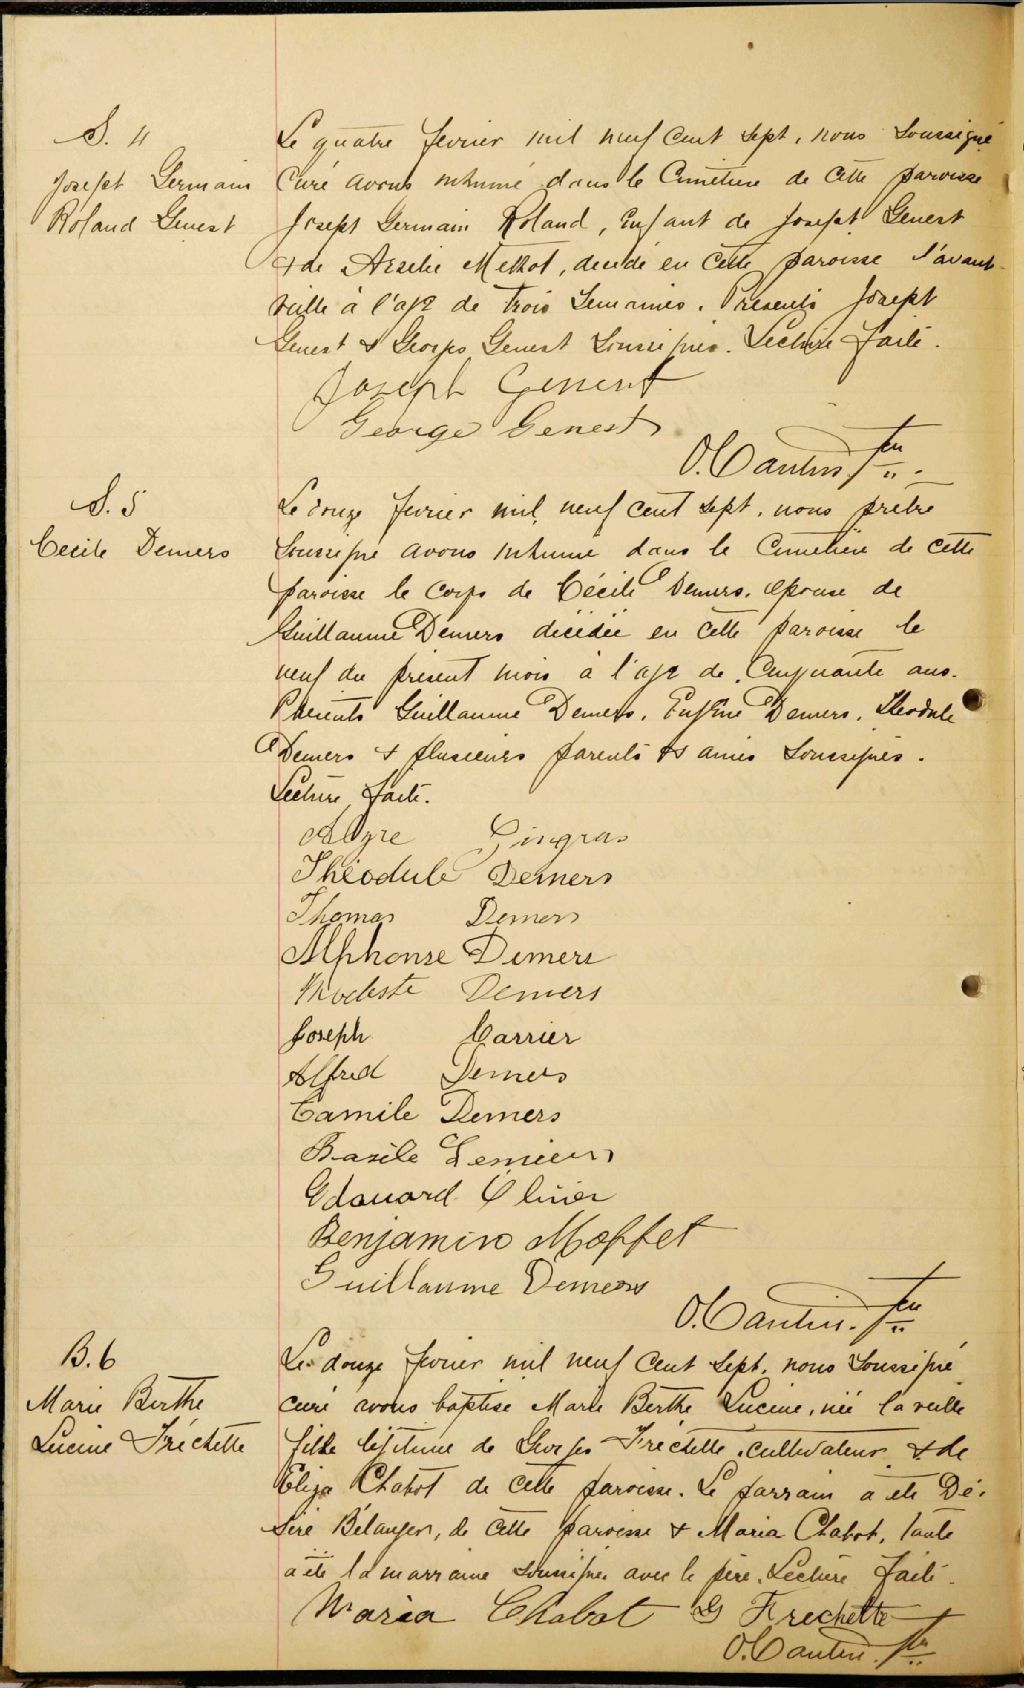 S. 4
Joseph Germain
Roland Genest
Le quatre fevrier mil neuf cent sept, nous soussigné
Curé avons inhumé dans le Cimetière de cette paroisse
Joseph Germain Roland, Enfant de Joseph Genest
& de Arselie Methot, decidé en cette paroisse l'avant-
veille à l'age de trois semaines. Présents Joseph
Genest & Georges Genest soussignés. Lecture faite.
Joseph Genest
George Genest
O. Cantin Ptre
S. 5
Cecile Demers
Le douze fevrier mil neuf cent sept, nous prêtre
soussigné avons inhumé dans le Cimetière de cette
paroisse le corps de Cécile Demers, epouse de
Guillaume Demers décédée en cette paroisse le
neuf du présent mois à l'age de Cinquante ans.
Présents Guillaume Demers, Eugène Demers, Theodule
Demers & plusieurs parents & amis soussignés.
Lecture faite.
Alyre Gingras
Théodule Demers
Thomas Demers
Alphonse Demers
Modeste Demers
Joseph Carrier
Alfred Demers
Camile Demers
Basile Lemieux
Edouard Olivier
Benjamin Moffet
Guillaume Demers
O. Cantin. Ptre
B. 6
Marie Berthe
Lucine Fréchette
Le douze fevrier mil neuf cent sept, nous soussigné
curé avons baptisé Marie Berthe Lucine, née la veille
fille légitime de Georges Fréchette, cultivateur & de
Eliza Chabot de cette paroisse. Le parrain a été Dé-
siré Bélanger, de cette paroisse & Maria Chabot, tante
a été la marraine soussignée avec le père. Lecture faite.
Maria Chabot G Frechette
O. Cantin Ptre